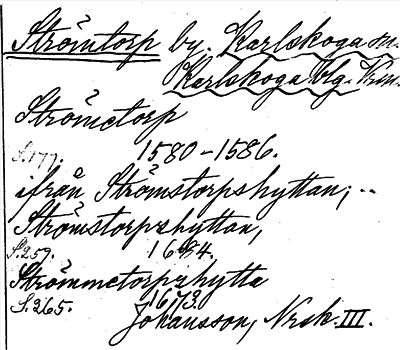 Strömtorp by. Karlskoga sn.
Karlskoga blg. Krm.
Strömetorp
S. 177. 1580–1586.
ifrån Strömstorpshyttan; --
Strömstorpzhyttan,
S. 259. 1644.
Strömmetorpzhytta
S. 265. 1673.
Johansson, Nrsk. III.